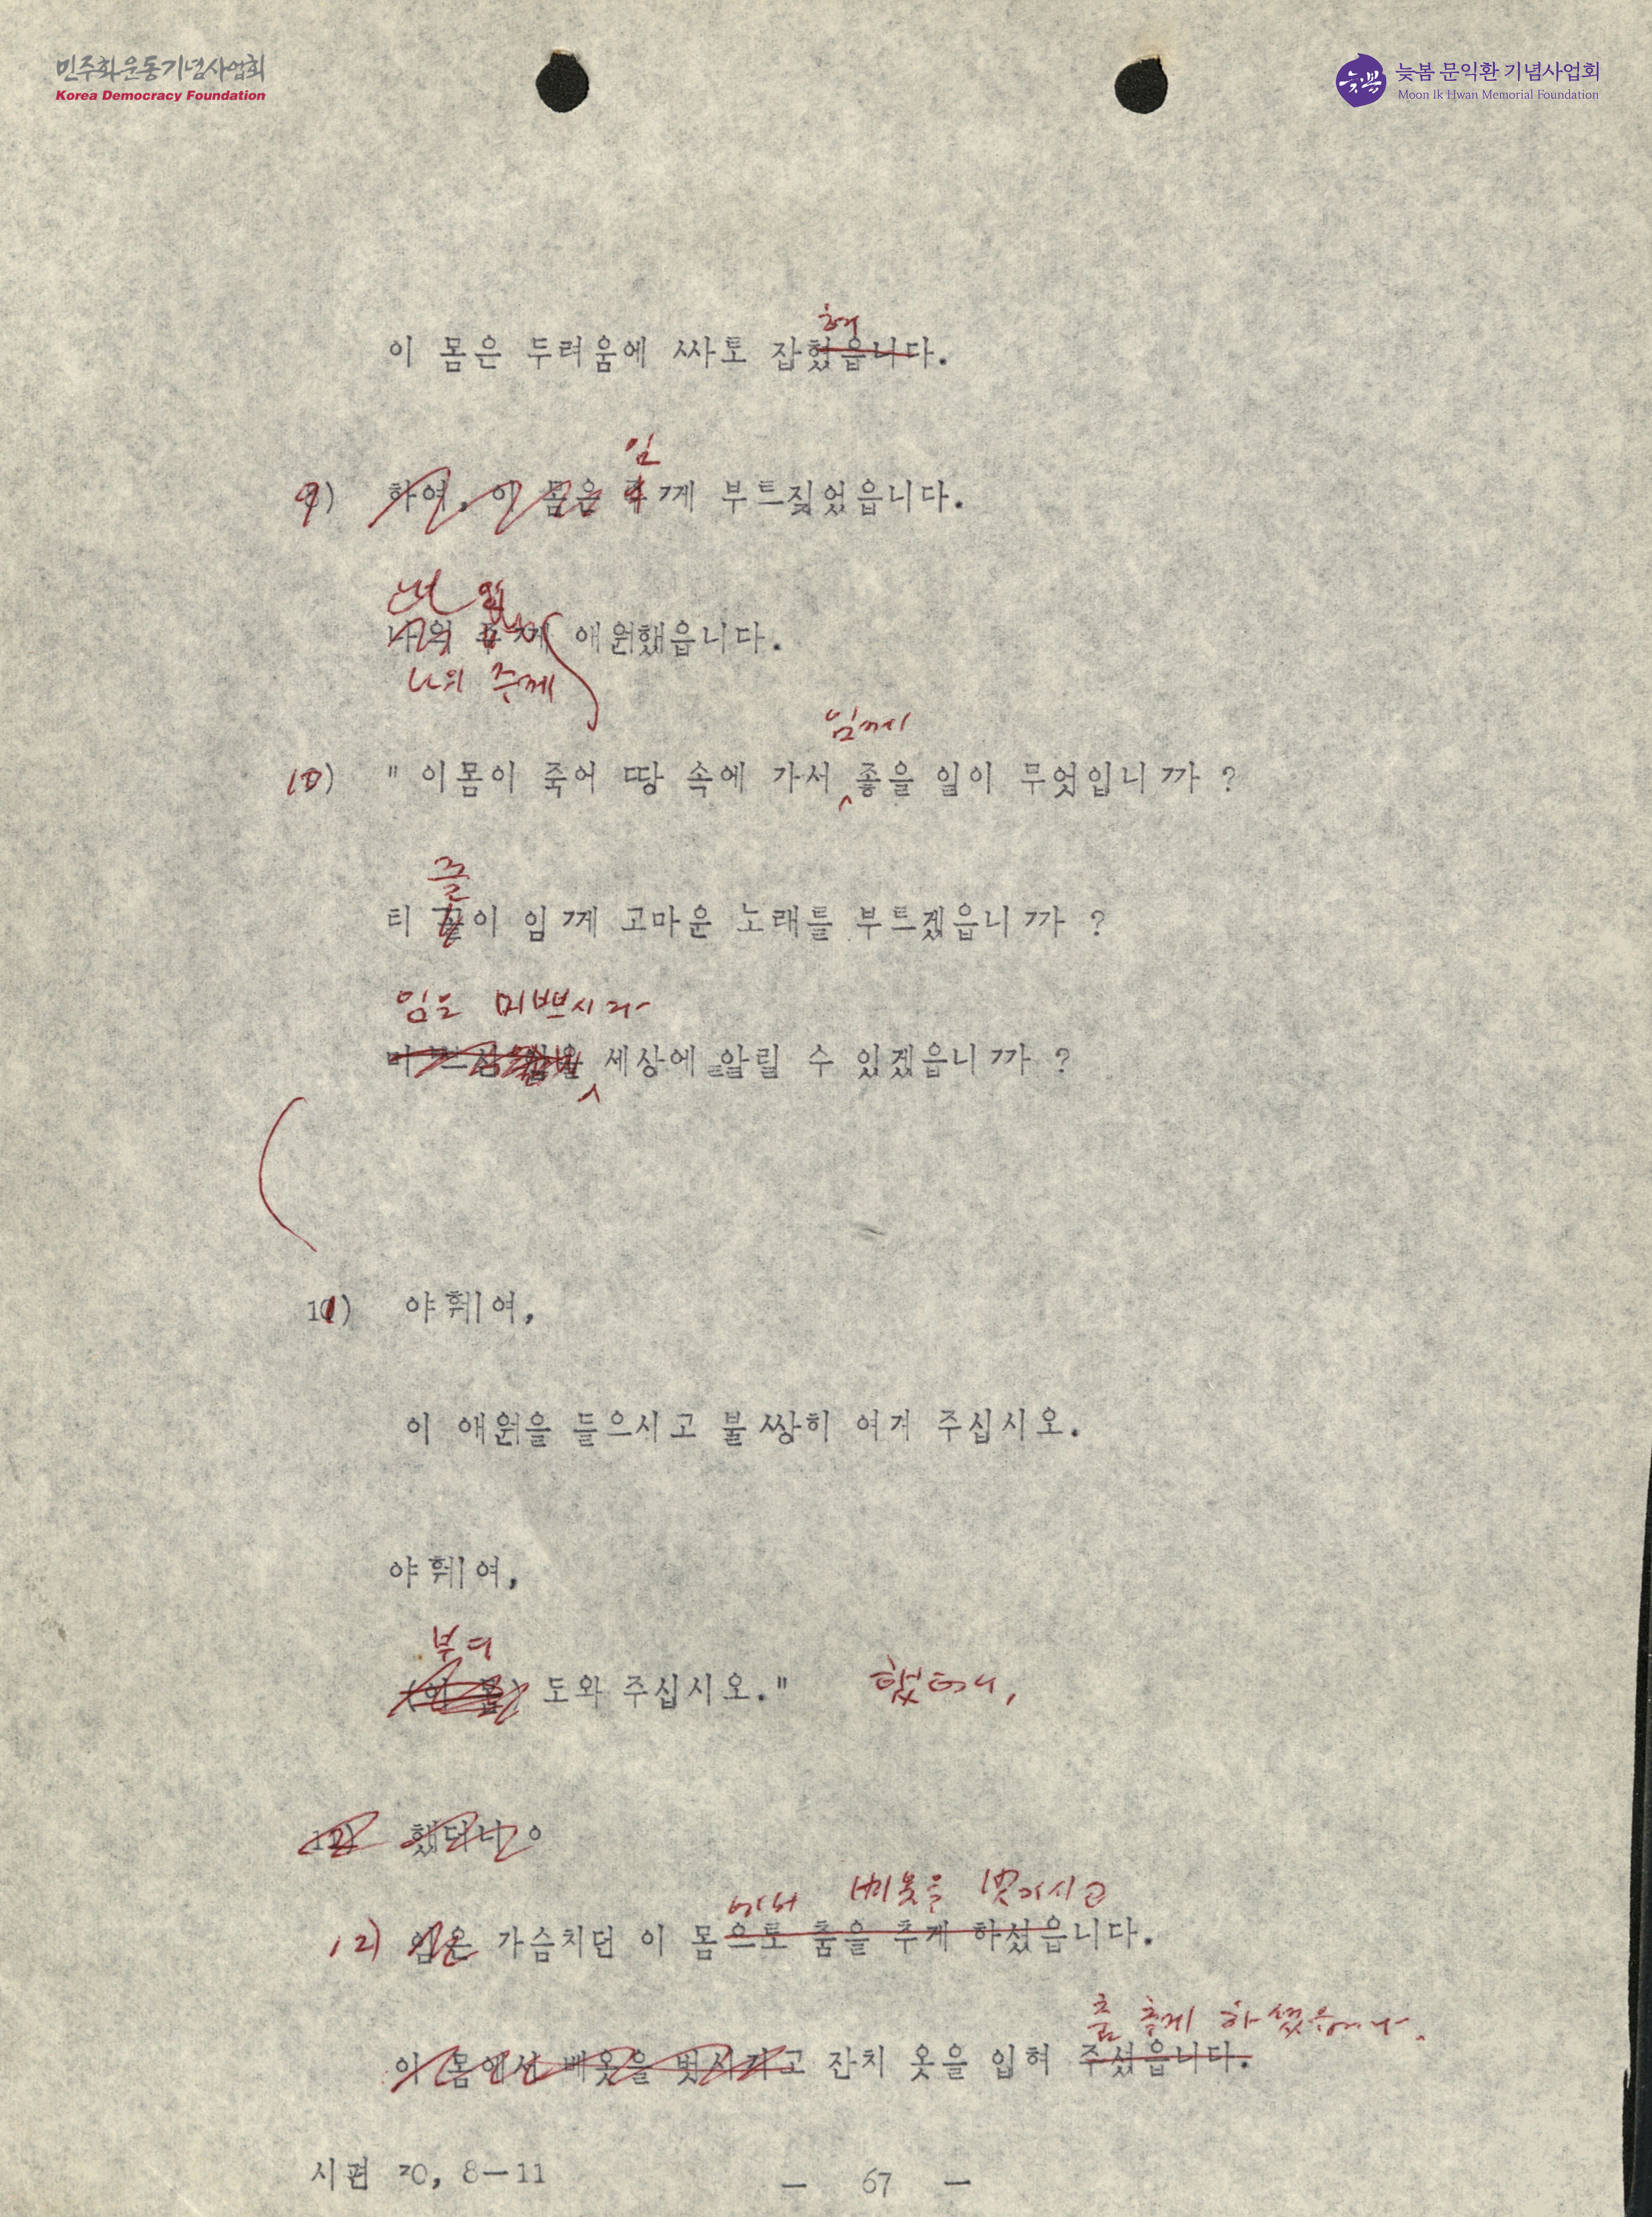 민주화운동기념사업회
Korea Democracy Foundation
늦봄
늦봄 문익환 기념사업회
Moon Ik Hwan Memorial Foundation
혀
이 몸은 두려움에 싸로 잡혔읍니다.
임
9) 하여, 이 몸은 주께 부르짖었읍니다.
나의 주께 애원했읍니다.
나의 주께
임께서
10) " 이몸이 죽어 땅 속에 가서 좋을 일이 무엇입니까 ?
티 끌이 임께 고마운 노래를 부르겠읍니까 ?
임은 미쁘시다
세상에 알릴 수 있겠읍니까 ?
11) 야훼여,
이 애원을 들으시고 불쌍히 여겨 주십시오.
야훼여,
부디
(이 몸) 도와 주십시오." 했더니,
12) 했더니
베옷을 벗기시고
12) 임은 가슴치던 이 몸으로 춤을 추게 하셨읍니다.
춤 추게 하셨읍니다.
이 몸에선 베옷을 벗시기고 잔치 옷을 입혀 주셨읍니다.
시편 30, 8-11
- 67 -